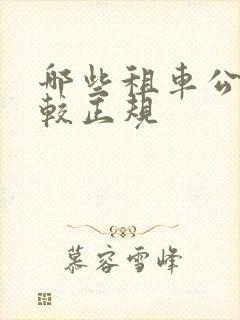 哪些租車公
較正規
慕容雪峰